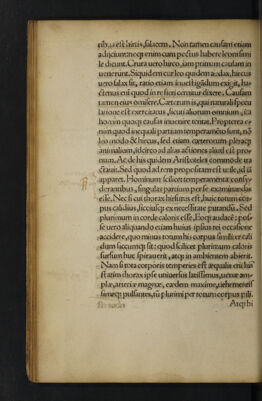 tibus est hirtis, salacem. Non tamen causam etiam
adiiciunt: neque enim cum pectus habere leoninum
le dicunt. Crura vero hirco, iam primum causam in
uenerunt. Siquidem cur leo quidem audax, hircus
vero salax sit, ratio etiam inuestigādum exigit, hac
ctenus enim quod in re fieri cernitur dixere. Causam
tamen eius omisere. Cæterum is, qui naturali specu
latione est exercitatus, sicuti aliorum omnium, ita
horum quoque causas inuenire tentat. Propterea
non quod inæquali partium temperamēto sunt, nō
leo modo & hircus, sed etiam cæterorum pleraque
animalium, idcirco ad alias actiones aliud
nun. Ac de his quidem Aristoteles commode tra
ctauit. Sed quod ad rem propositam est utile, id iā
apparet. Hominum scilicet temperamenta consy
derantibus, singulas partium per se examinandas
esse. Nec si cui thorax hirsutus est, huic totum cor
pus calidius, siccius'q; ex necessitate putandū. Sed
plurimum in corde caloris esse. Eo'q; audacē: pos
se vero aliquando etiam huius ipsius rei occasione
accidere, quo minus totum his corpus similiter cali
dum siccum'q; sit: quod scilicet plurimum caloris
sursum huc spirauerit, atque in ambientem abierit.
Nam si tota corporis temperies est æqualis etiam his
statim thorax ipse uniuersus latissimus, venæ am
plæ, arteriæ magnæ, eædem maxime, vehementis
sime'q; pulsantes, tū plurimi per totum corpus pili.
Atq; hi